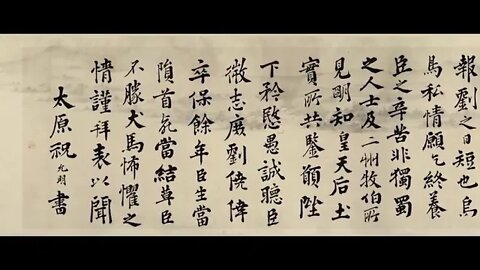 報劉之日短也烏
鳥私情願乞終養
臣之辛苦非獨蜀
之人士及二州牧伯所
見明知皇天后土
實所共鑒願陛
下矜愍愚誠聽臣
微志庶劉僥倖
卒保餘年臣生當
隕首死當結草臣
不勝犬馬怖懼之
情謹拜表以聞
太原祝允明書